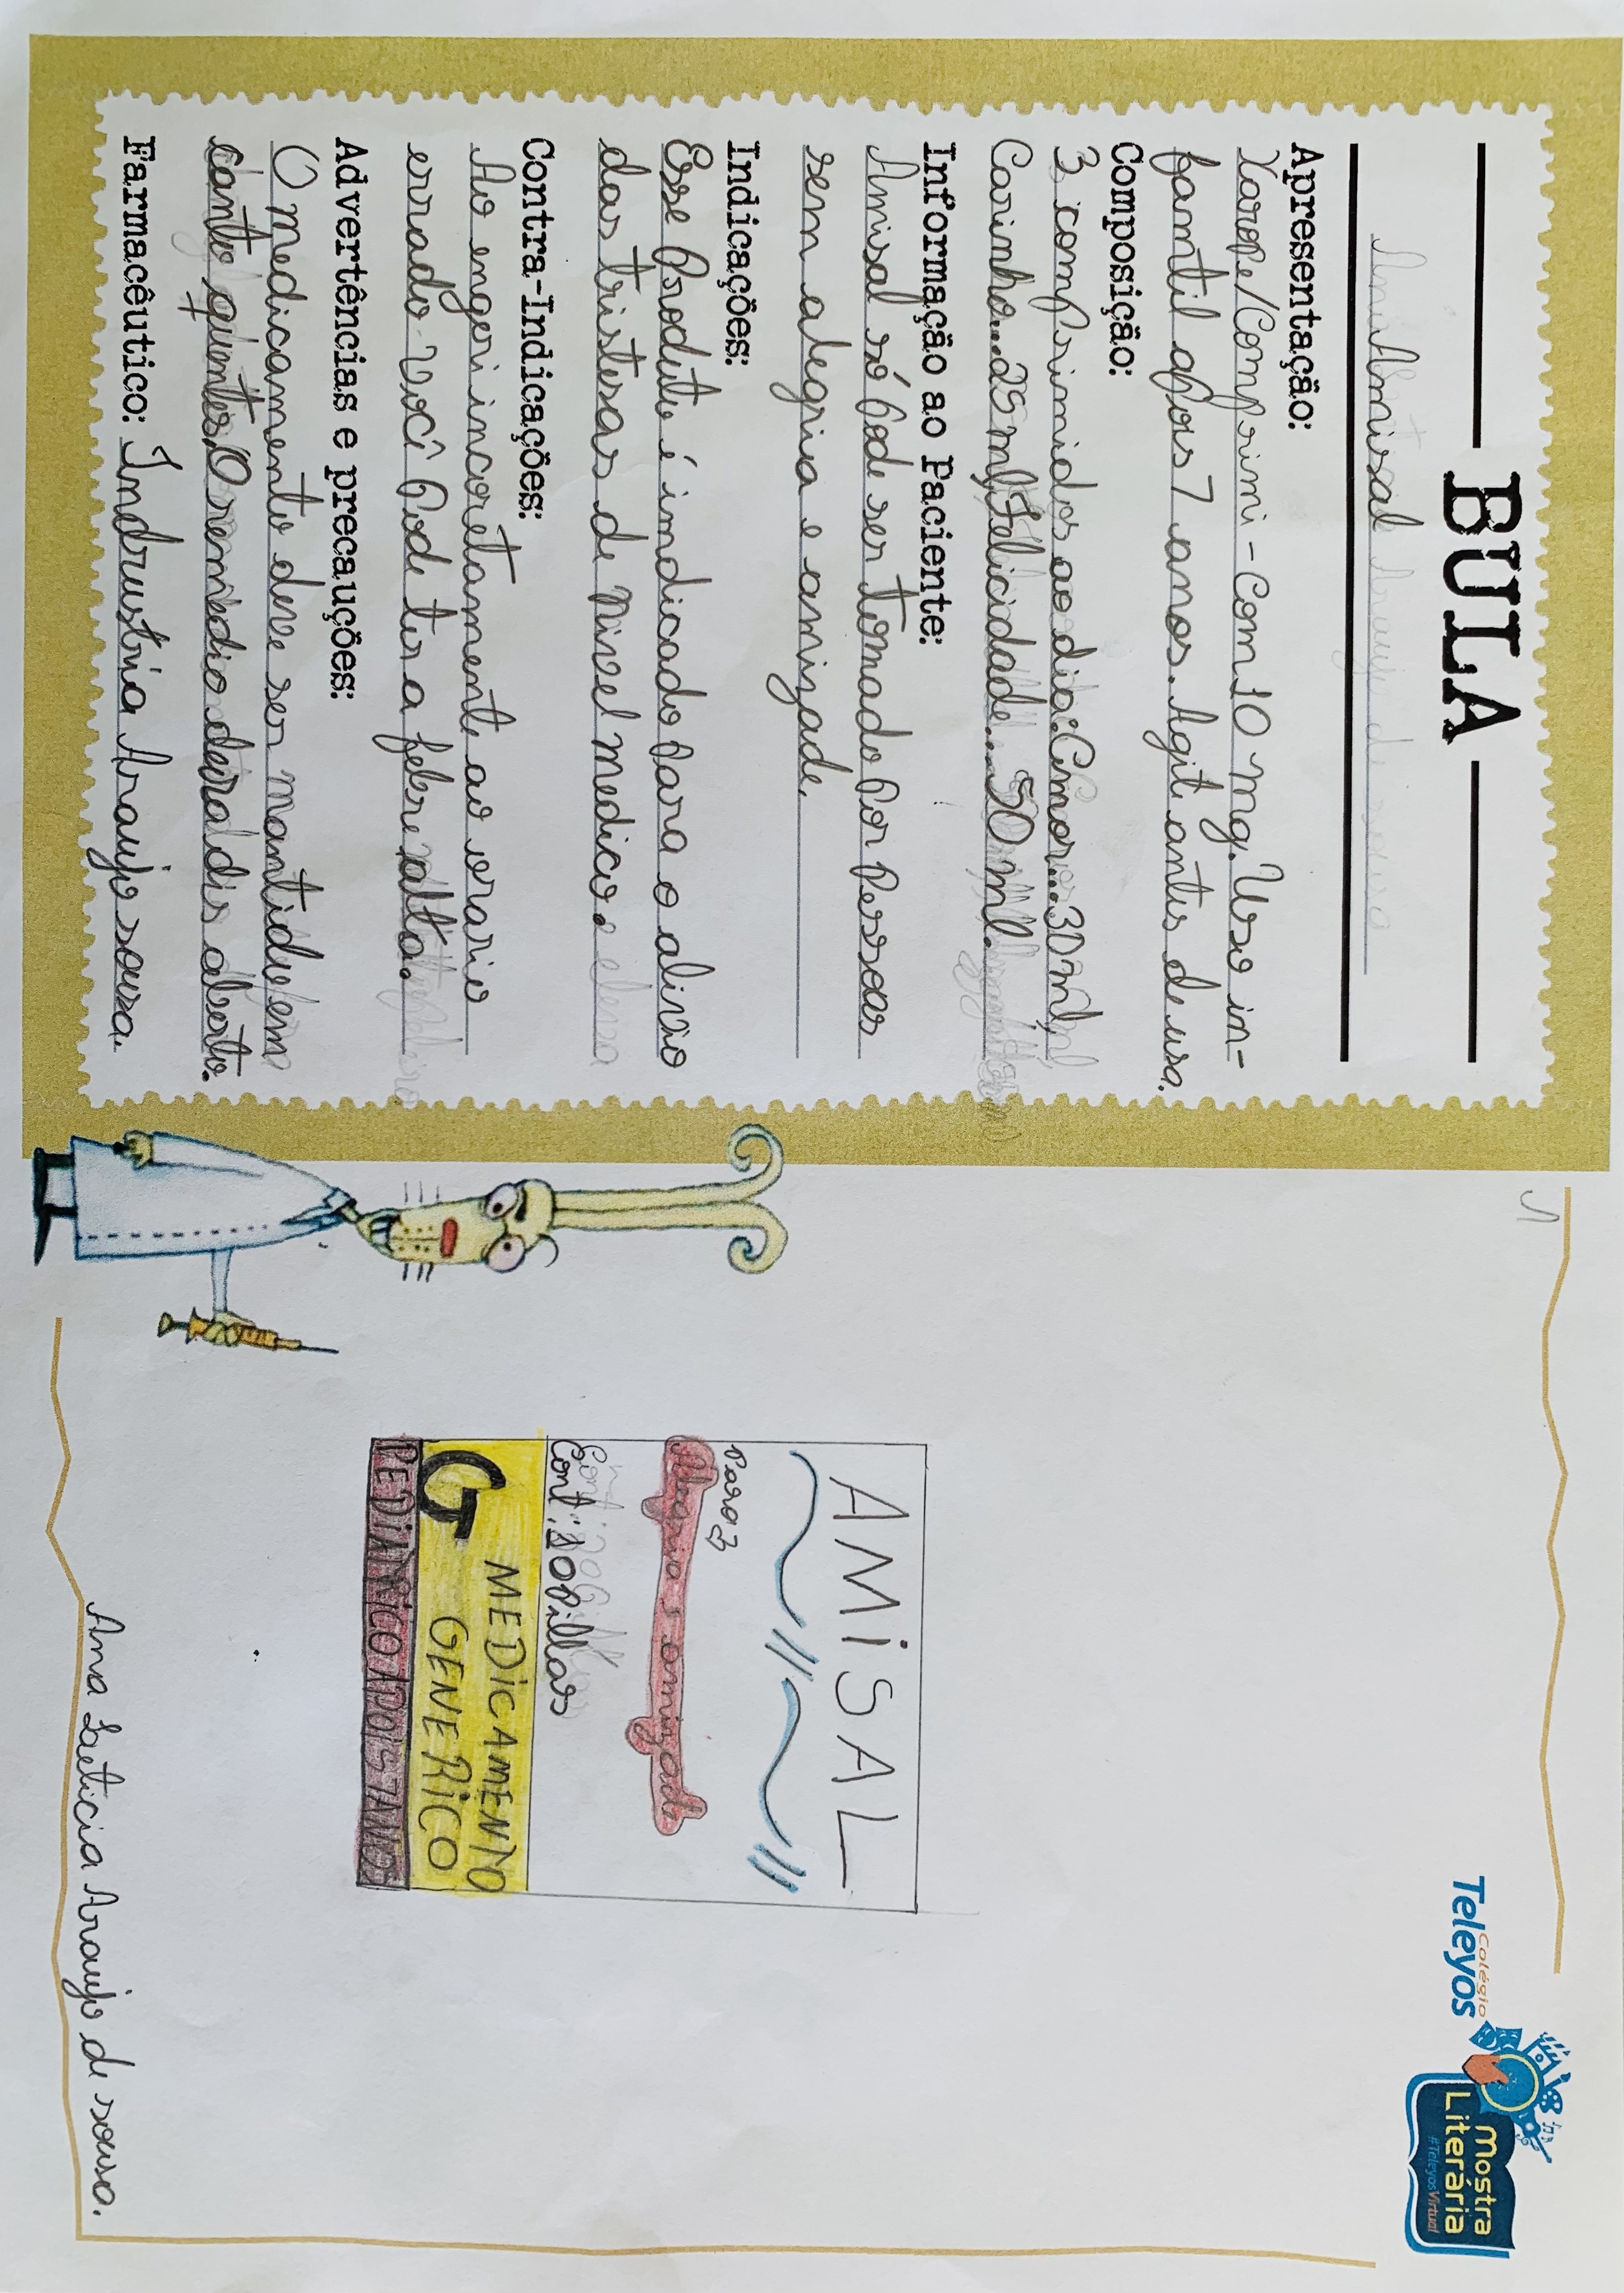 BULA
Amisal
Apresentação:
Xarope/Comprimi - Com 10 mg. Uso in-
fantil após 7 anos. Agite antes de usa.
Composição:
3 comprimidos ao dia: Amor...30 ml,
Carinho...25 ml, Felicidade...50 ml.
Informação ao Paciente:
Amisal só pode ser tomado por pessoas
sem alegria e amizade.
Indicações:
Esse produto é indicado para o alivio
das tristesas de nivel medico.
Contra-Indicações:
Ao engeri incoretamente ao orario
errado você pode ter a febre alta.
Advertências e precauções:
O medicamento deve ser mantido em
canto quentes. O remedio deira dis aberto.
Farmacêutico: Indrustria Araujo souza.
AMiSAL
Para 3
amizade
Cont: 10 Pillas
G MEDiCAMENTO
GENERiCO
Colégio
Teleyos
Mostra
Literária
#TeleyosVirtual
Ana Laeticia Araujo de sousa.